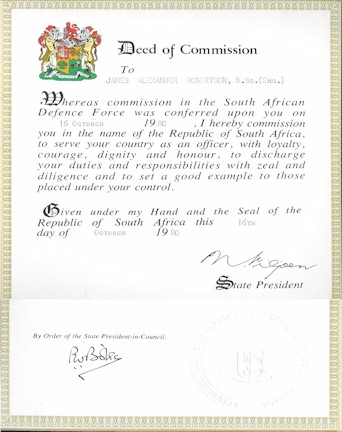 Deed of Commission
To
JAMES ALEXANDER ROBERTSON, B.Sc.(Eng.)
Whereas commission in the South African
Defence Force was conferred upon you on
16 October 1980 , I hereby commission
you in the name of the Republic of South Africa,
to serve your country as an officer, with loyalty,
courage, dignity and honour, to discharge
your duties and responsibilities with zeal and
diligence and to set a good example to those
placed under your control.
Given under my Hand and the Seal of the
Republic of South Africa this 16th
day of October 1980
State President
By Order of the State President-in-Council.